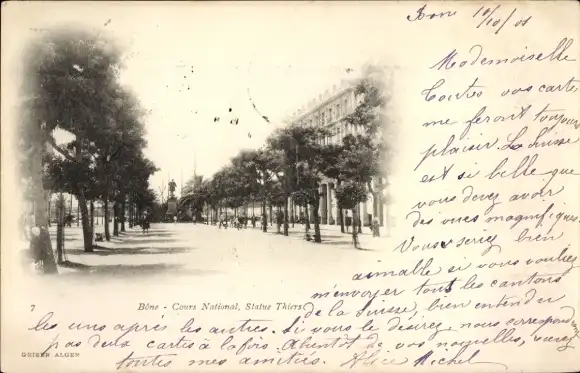 Bone 10/10/01
Mademoiselle
Toutes vos cartes
me feront toujours
plaisir. La Suisse
est si belle que
vous devez avoir
des vues magnifiques.
Vous seriez bien
aimable si vous vouliez
m'envoyer tous les cantons
de la Suisse, bien entendu
les uns après les autres. Si vous le désirez, nous
pas deux cartes à la fois. A bientôt de vos nouvelles, recevez
toutes mes amitiés. Alice Michel
7 Bône - Cours National, Statue Thiers
GEISER ALGER